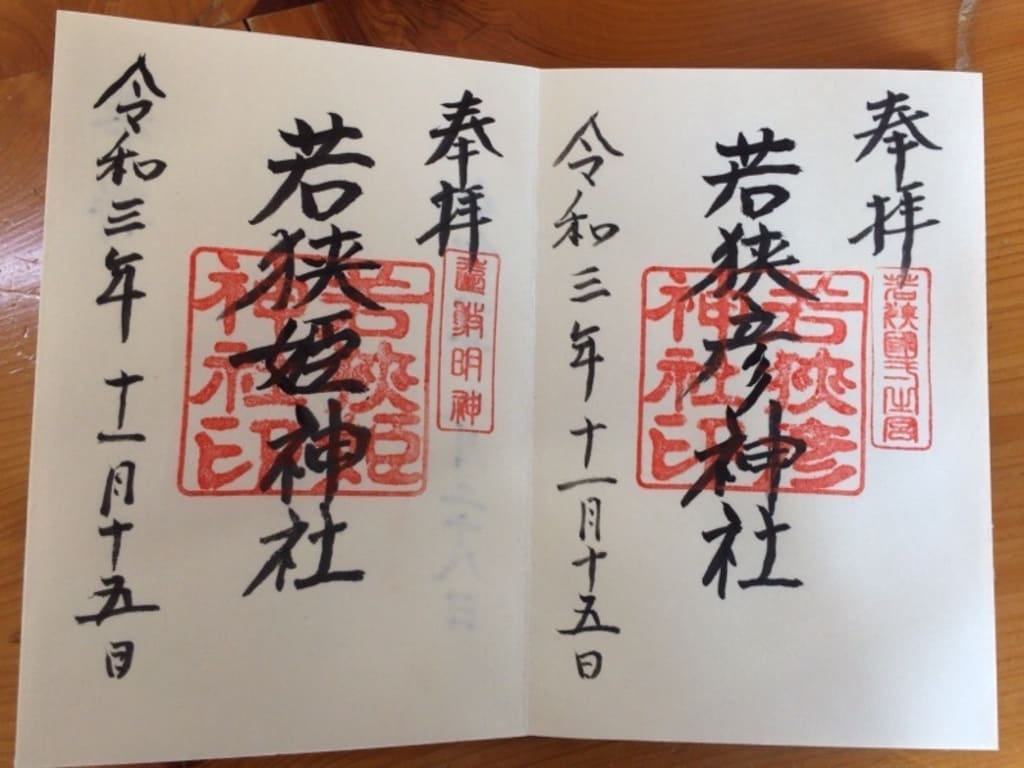 奉拝
若狭國一之宮
若狭彦神社
若狭彦
神社印
令和三年十一月十五日
奉拝
遠敷明神
若狭姫神社
若狭姫
神社印
令和三年十一月十五日